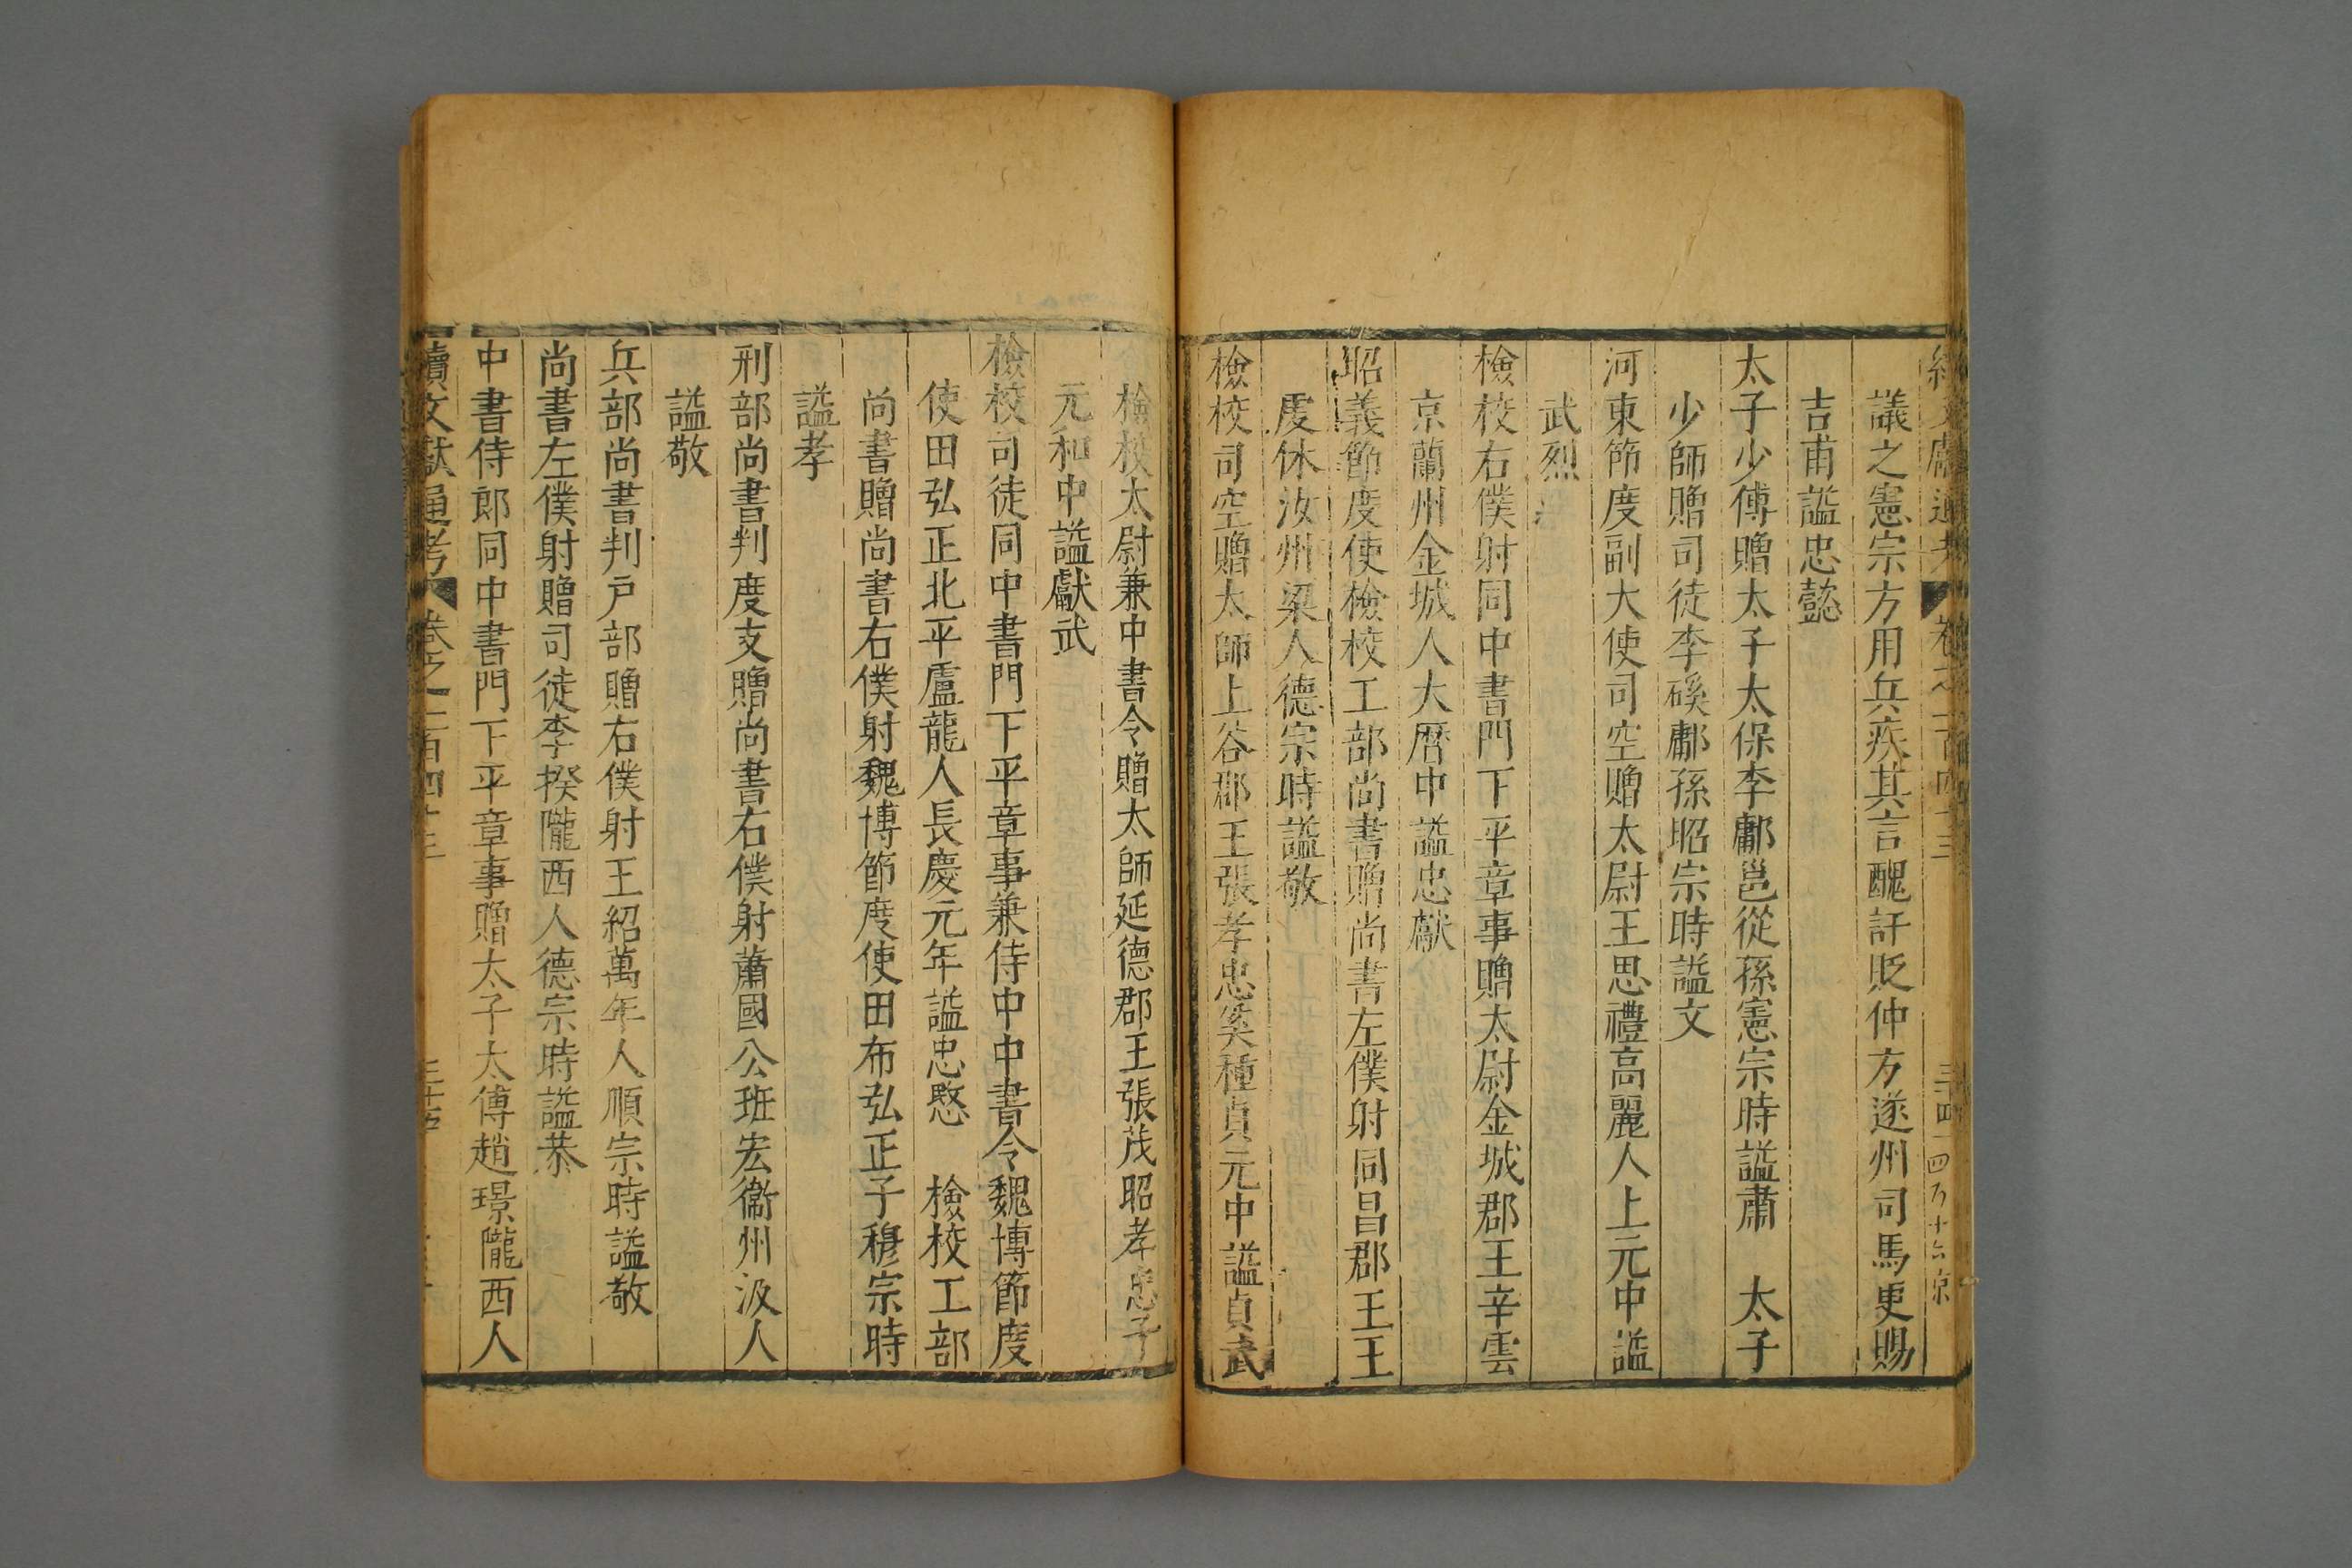 議之憲宗方用兵疾其言醜訐貶仲方遂州司馬更賜
吉甫謚忠懿
太子少傅贈太子太保李鄘邕從孫憲宗時謚肅 太子
少師贈司徒李磎鄘孫昭宗時謚文
河東節度副大使司空贈太尉王思禮高麗人上元中謚
武烈
檢校右僕射同中書門下平章事贈太尉金城郡王辛雲
京蘭州金城人大曆中謚忠獻
昭義節度使檢校工部尚書贈尚書左僕射同昌郡王王
虔休汝州梁人德宗時謚敬
檢校司空贈太師上谷郡王張孝忠奚種貞元中謚貞武
檢校太尉兼中書令贈太師延德郡王張茂昭孝忠子
元和中謚獻武
檢校司徒同中書門下平章事兼侍中中書令魏博節度
使田弘正北平盧龍人長慶元年謚忠愍 檢校工部
尚書贈尚書右僕射魏博節度使田布弘正子穆宗時
謚孝
刑部尚書判度支贈尚書右僕射蕭國公班宏衞州汲人
謚敬
兵部尚書判戶部贈右僕射王紹萬年人順宗時謚敬
尚書左僕射贈司徒李揆隴西人德宗時謚恭
中書侍郎同中書門下平章事贈太子太傅趙璟隴西人
續文獻通考 卷之一百四十三